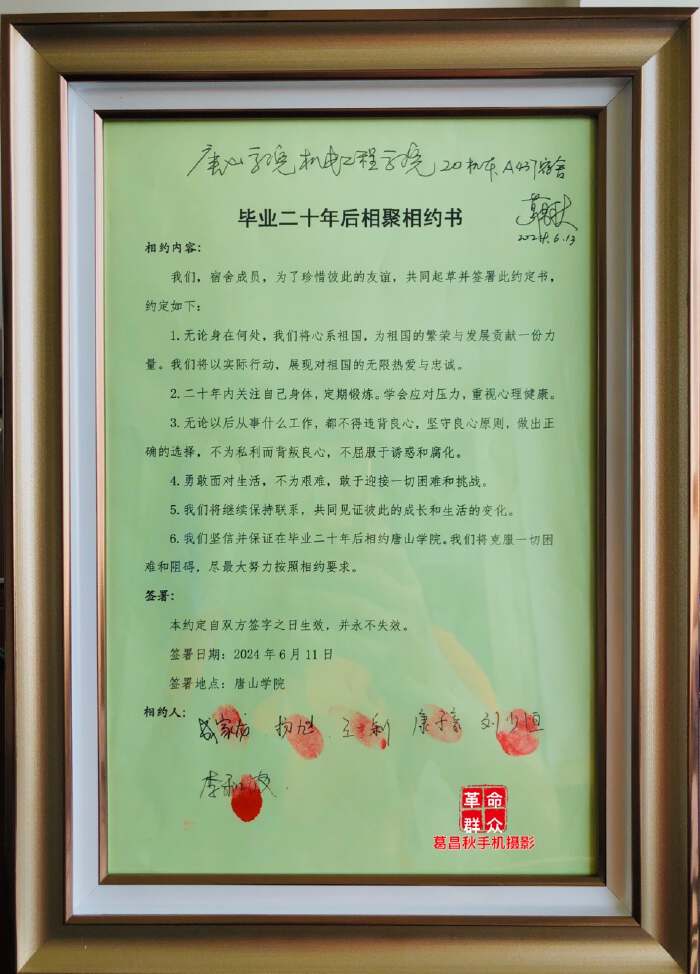 唐山学院机电工程学院 20机本 A437宿舍
2024.6.13
毕业二十年后相聚相约书
相约内容：
我们，宿舍成员，为了珍惜彼此的友谊，共同起草并签署此约定书，
约定如下：
1.无论身在何处，我们将心系祖国，为祖国的繁荣与发展贡献一份力
量。我们将以实际行动，展现对祖国的无限热爱与忠诚。
2.二十年内关注自己身体，定期锻炼。学会应对压力，重视心理健康。
3.无论以后从事什么工作，都不得违背良心，坚守良心原则，做出正
确的选择，不为私利而背叛良心，不屈服于诱惑和腐化。
4.勇敢面对生活，不为艰难，敢于迎接一切困难和挑战。
5.我们将继续保持联系，共同见证彼此的成长和生活的变化。
6.我们坚信并保证在毕业二十年后相约唐山学院。我们将克服一切困
难和阻碍，尽最大努力按照相约要求。
签署：
本约定自双方签字之日生效，并永不失效。
签署日期：2024 年 6 月 11 日
签署地点：唐山学院
相约人：
杨旭 康子豪 刘少恒
革命
群众
葛昌秋手机摄影